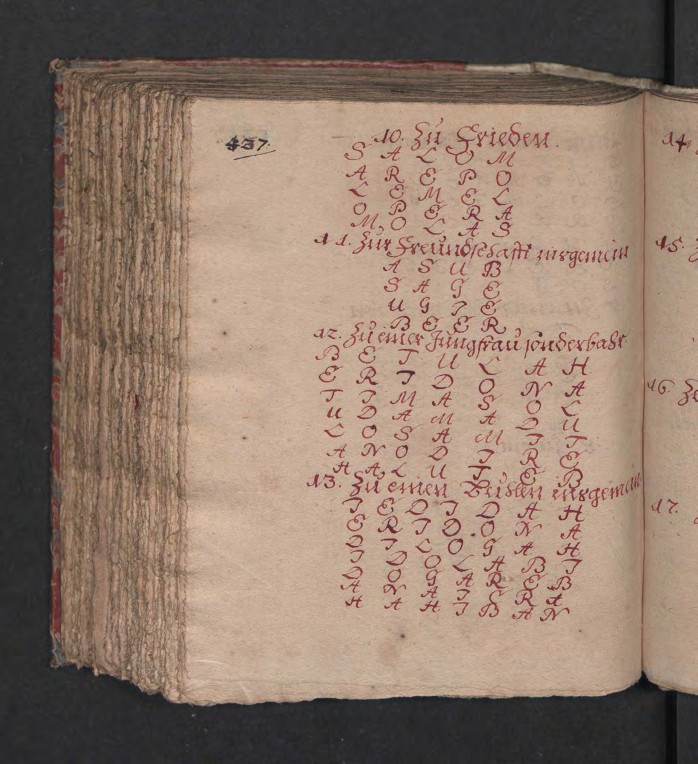 437.
10. Zu Frieden.
S A L O M
A R E P O
L E M E L
O P E R A
M O L A S
11. Zur Freundschafft insgemein
A S U B
S A G E
U G I E
B E E R
12. Zu einer Jungfrau sonderbahr
B E T U L A H
E R I D O N A
T I M A S O L
U D A M A D U
L O S A M I T
A N O D I R E
H A L U T E B
13. Zu einen insgemein
I E D I D A H
E R I D O N A
D I L O G A H
I D O L A B I
D O G A R E B
A N A I R A
H A H I B A N
14.
15.
16.
17.